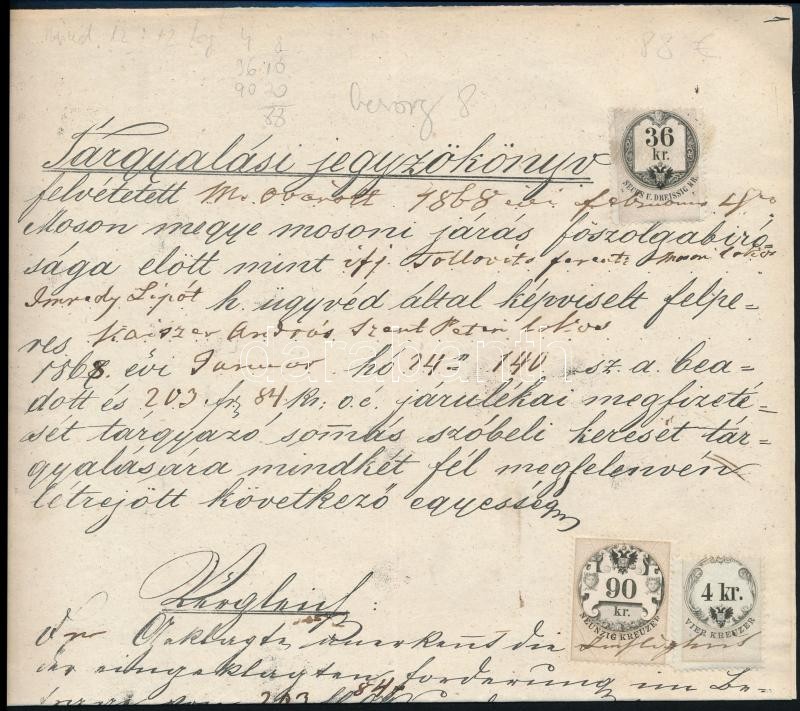 4 8
96 16
90 20
88
88 €
Tárgyalási jegyzőkönyv
36
kr.
SECHS U. DREISSIG KR.
felvétetett M. Óvárott 1868 évi február
Moson megye mosoni járás főszolgabiró=
sága előtt mint ifj.
Imredy Lipót h. ügyvéd által képviselt felpe=
res Kaiszer András Szent Péteri lakos
1868. évi Januar hó 24 140 sz. a. bea=
dott és 203 frt 84 kr. o. é. járulékai megfizeté=
sét tárgyazó sommás szóbeli kereset tár=
gyalására mindkét fél megjelenvén
létrejött következő egyesség
darabanth
Vergleich:
90
kr.
NEUNZIG KREUZER
4 kr.
VIER KREUZER
Geklagte anerkent die
der eingeklagten forderung im Be=
von 203 84